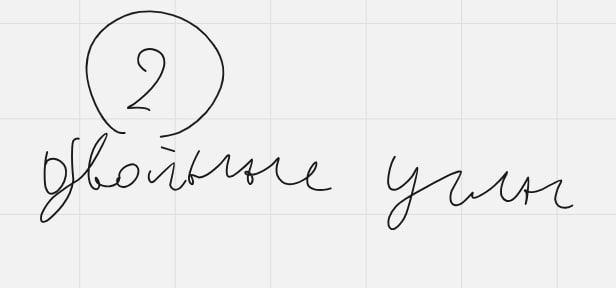 2
двойные углы